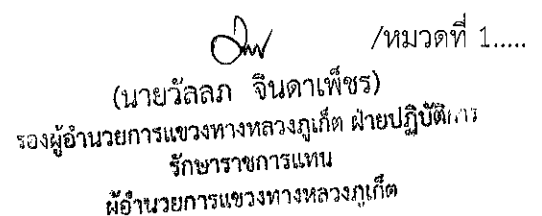 /หมวดที่ 1.....
(นายวัลลภ จินดาเพ็ชร)
รองผู้อำนวยการแขวงทางหลวงภูเก็ต ฝ่ายปฏิบัติการ
รักษาราชการแทน
ผู้อำนวยการแขวงทางหลวงภูเก็ต